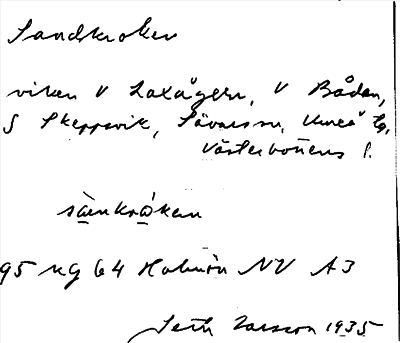 Sandkroken
viken V Laxågern, V Bådan,
S Skeppsvik, Sävarssn, Umeå tg,
Västerbottens l.
sa̲enkrå̲ken
95 kg 64 Holmön NV A3
Seth Larsson 1935